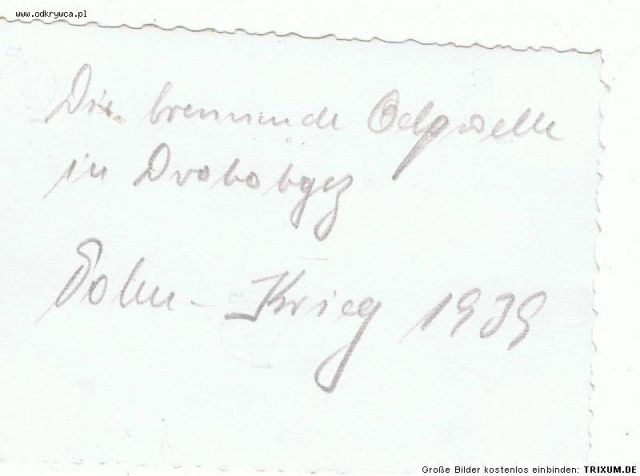 www.odkrywca.pl
Die brennende Oelquelle
in Drohobycz
Polen-Krieg 1939
Große Bilder kostenlos einbinden: TRIXUM.DE